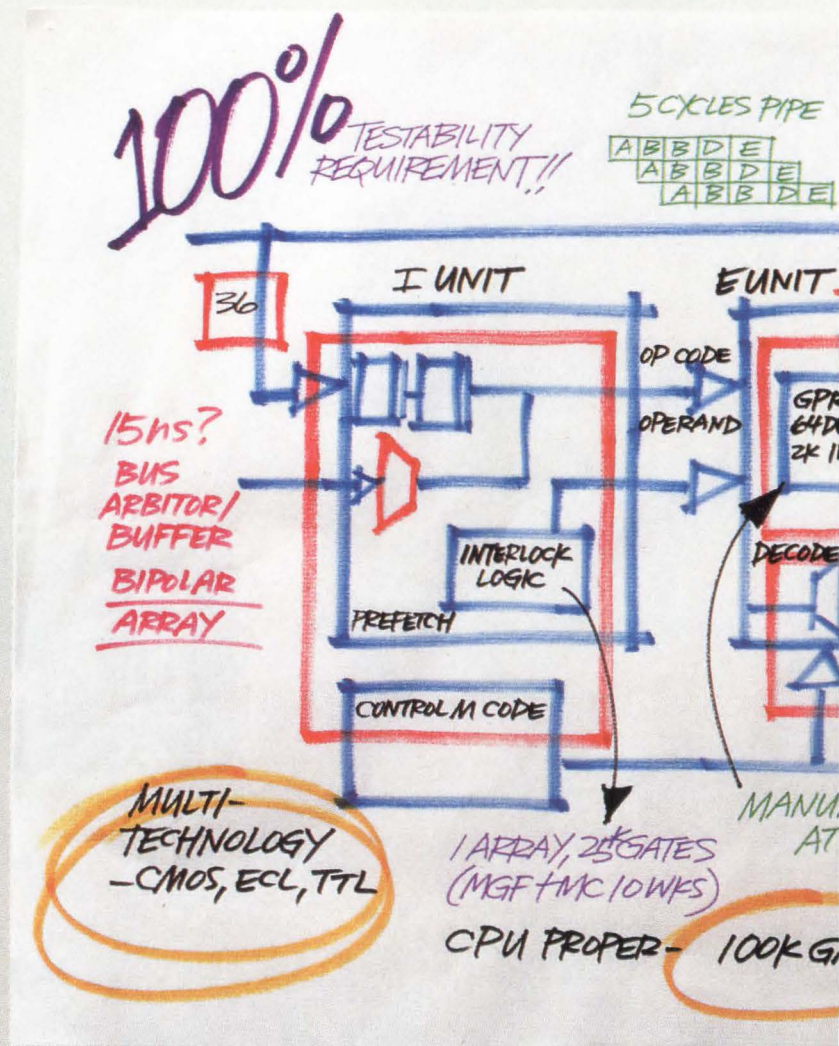 100%
TESTABILITY
REQUIREMENT!!
5 CYCLES PIPE
A B B D E
A B B D E
A B B D E
I UNIT
E UNIT
36
OP CODE
OPERAND
GPR
2K
15ns?
BUS
ARBITOR/
BUFFER
BIPOLAR
ARRAY
INTERLOCK
LOGIC
DECODE
PREFETCH
CONTROL M CODE
MULTI-
TECHNOLOGY
-CMOS, ECL, TTL
1 ARRAY, 25K GATES
(MGF+MC 10 WKS)
MANU
AT
CPU PROPER- 100K GA